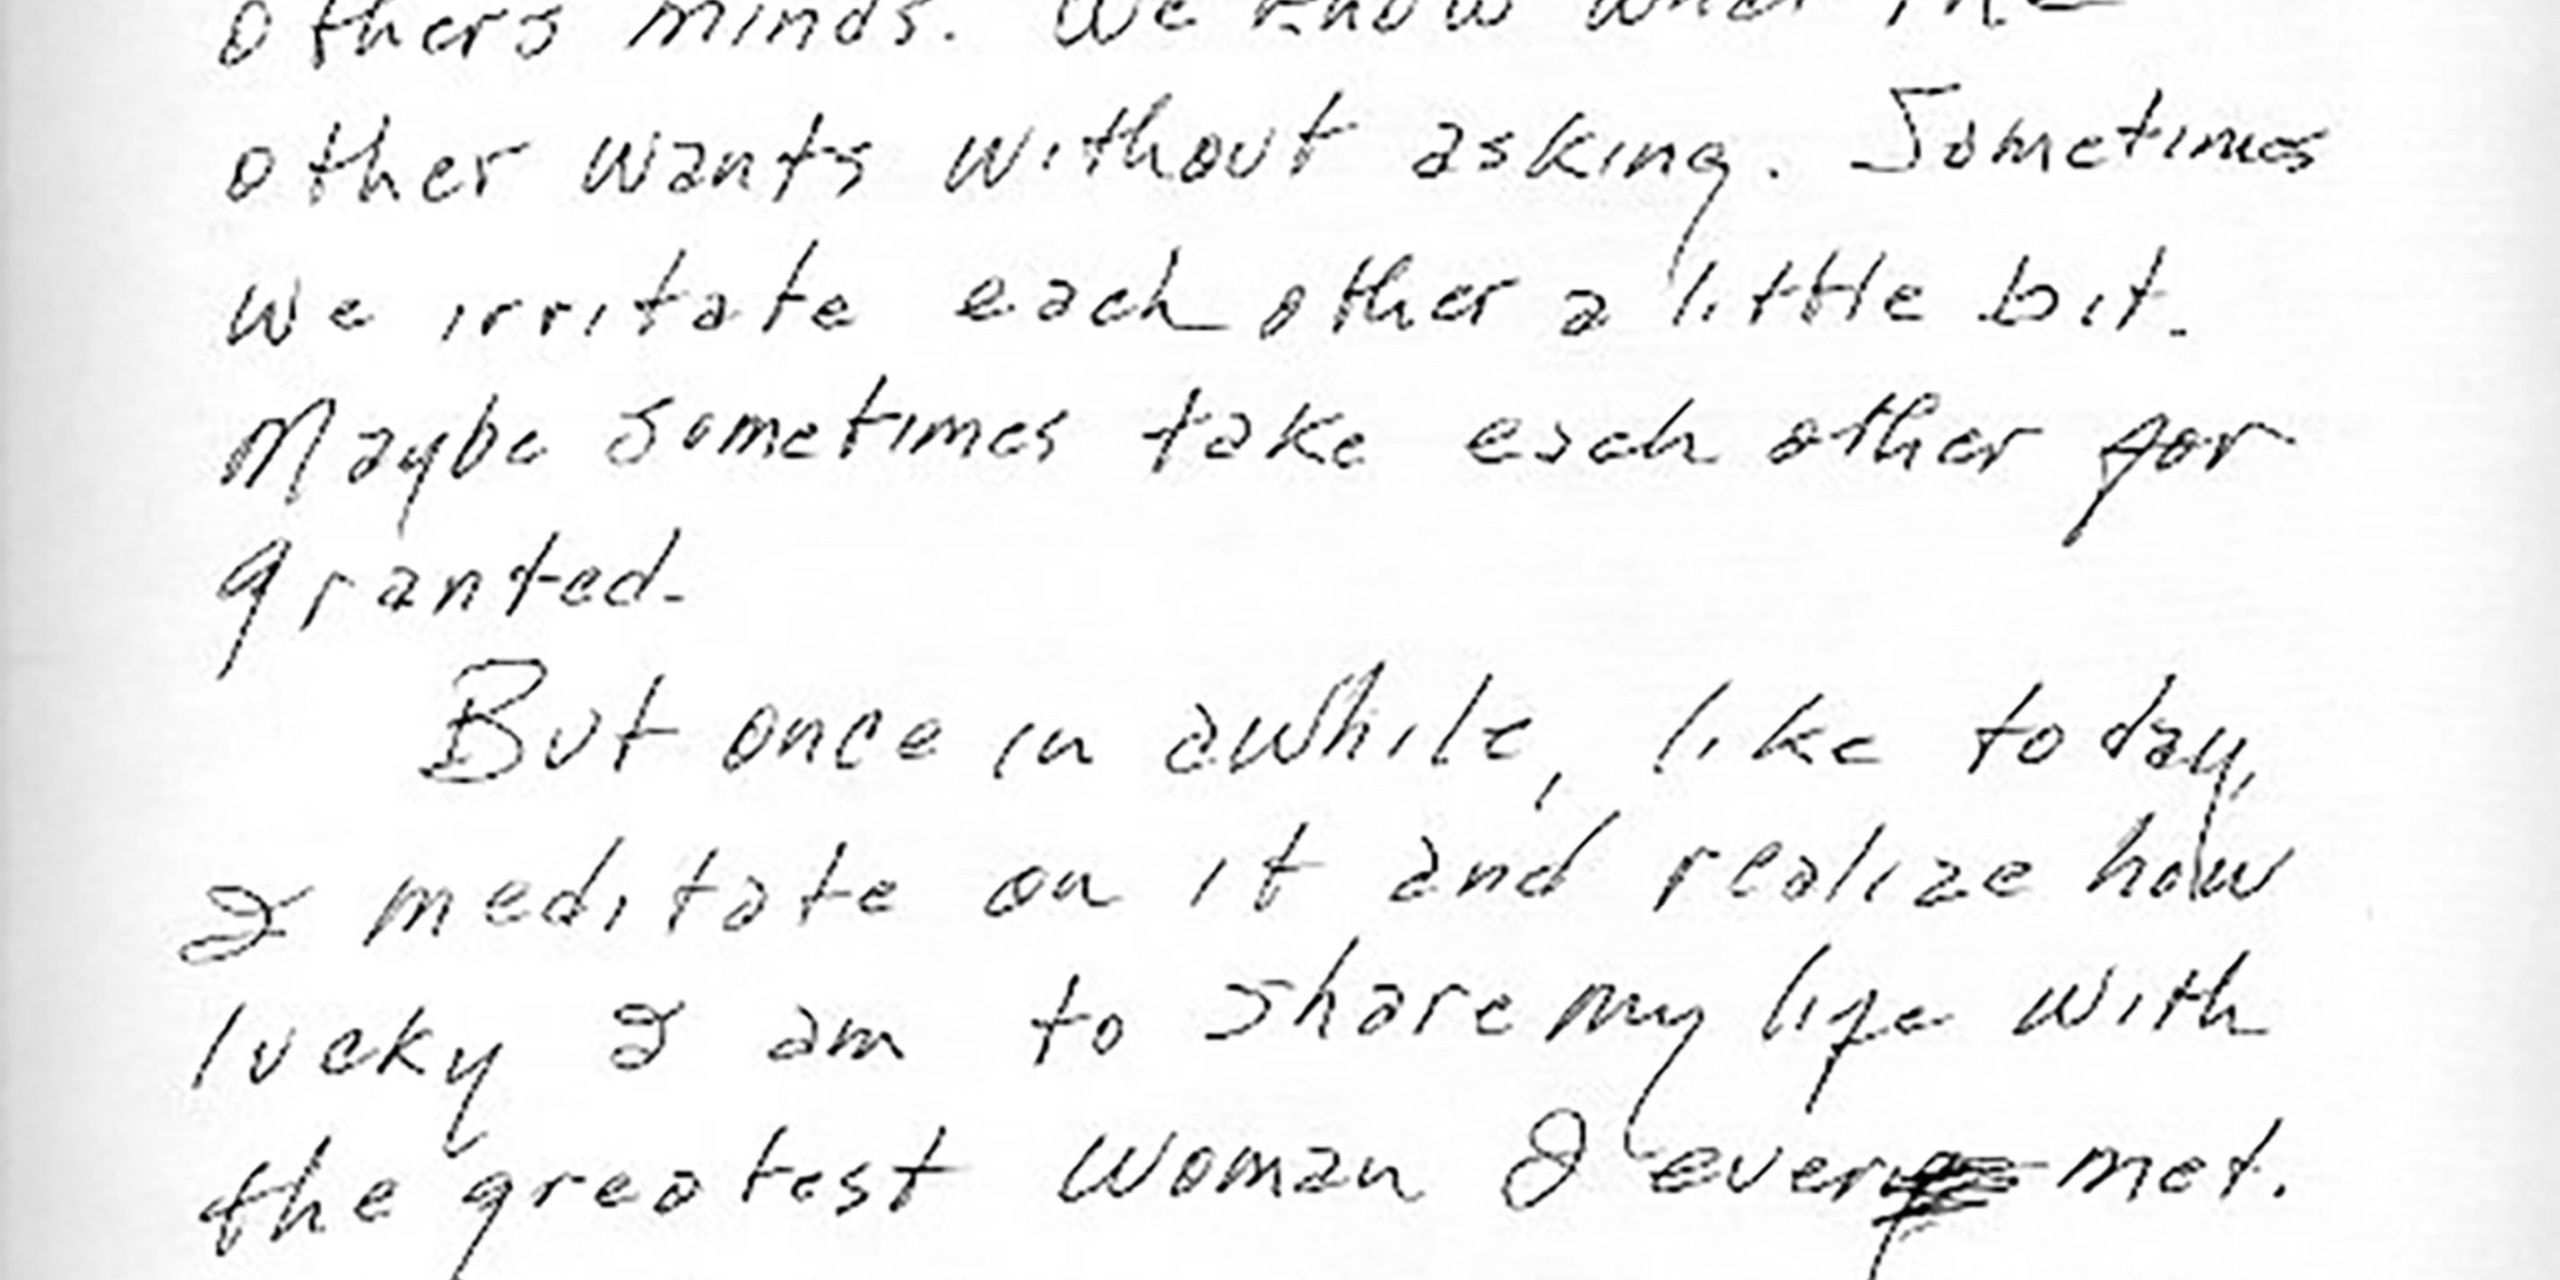 others minds. We know what the
other wants without asking. Sometimes
we irritate each other a little bit.
Maybe sometimes take each other for
granted.
But once in awhile, like today,
I meditate on it and realize how
lucky I am to share my life with
the greatest woman I ever met.